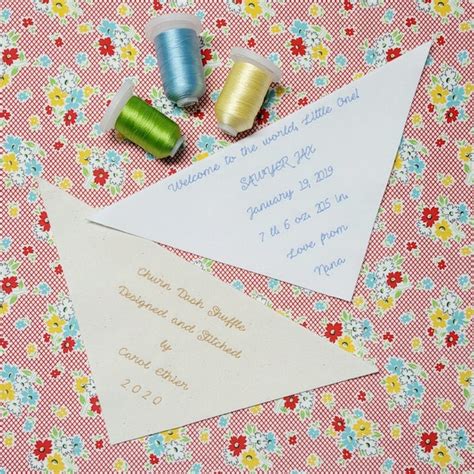 Welcome to the world, Little One!
SAWYER JAX
January 19, 2019
7 lb 6 oz. 20.5 in.
Love from
Nana
Churn Dash Shuffle
Designed and Stitched
by
Carol
2020